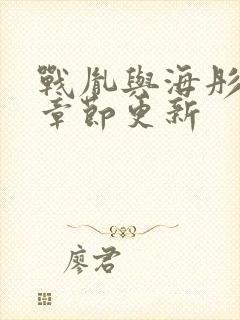 戰胤與海彤
章節更新
廖君